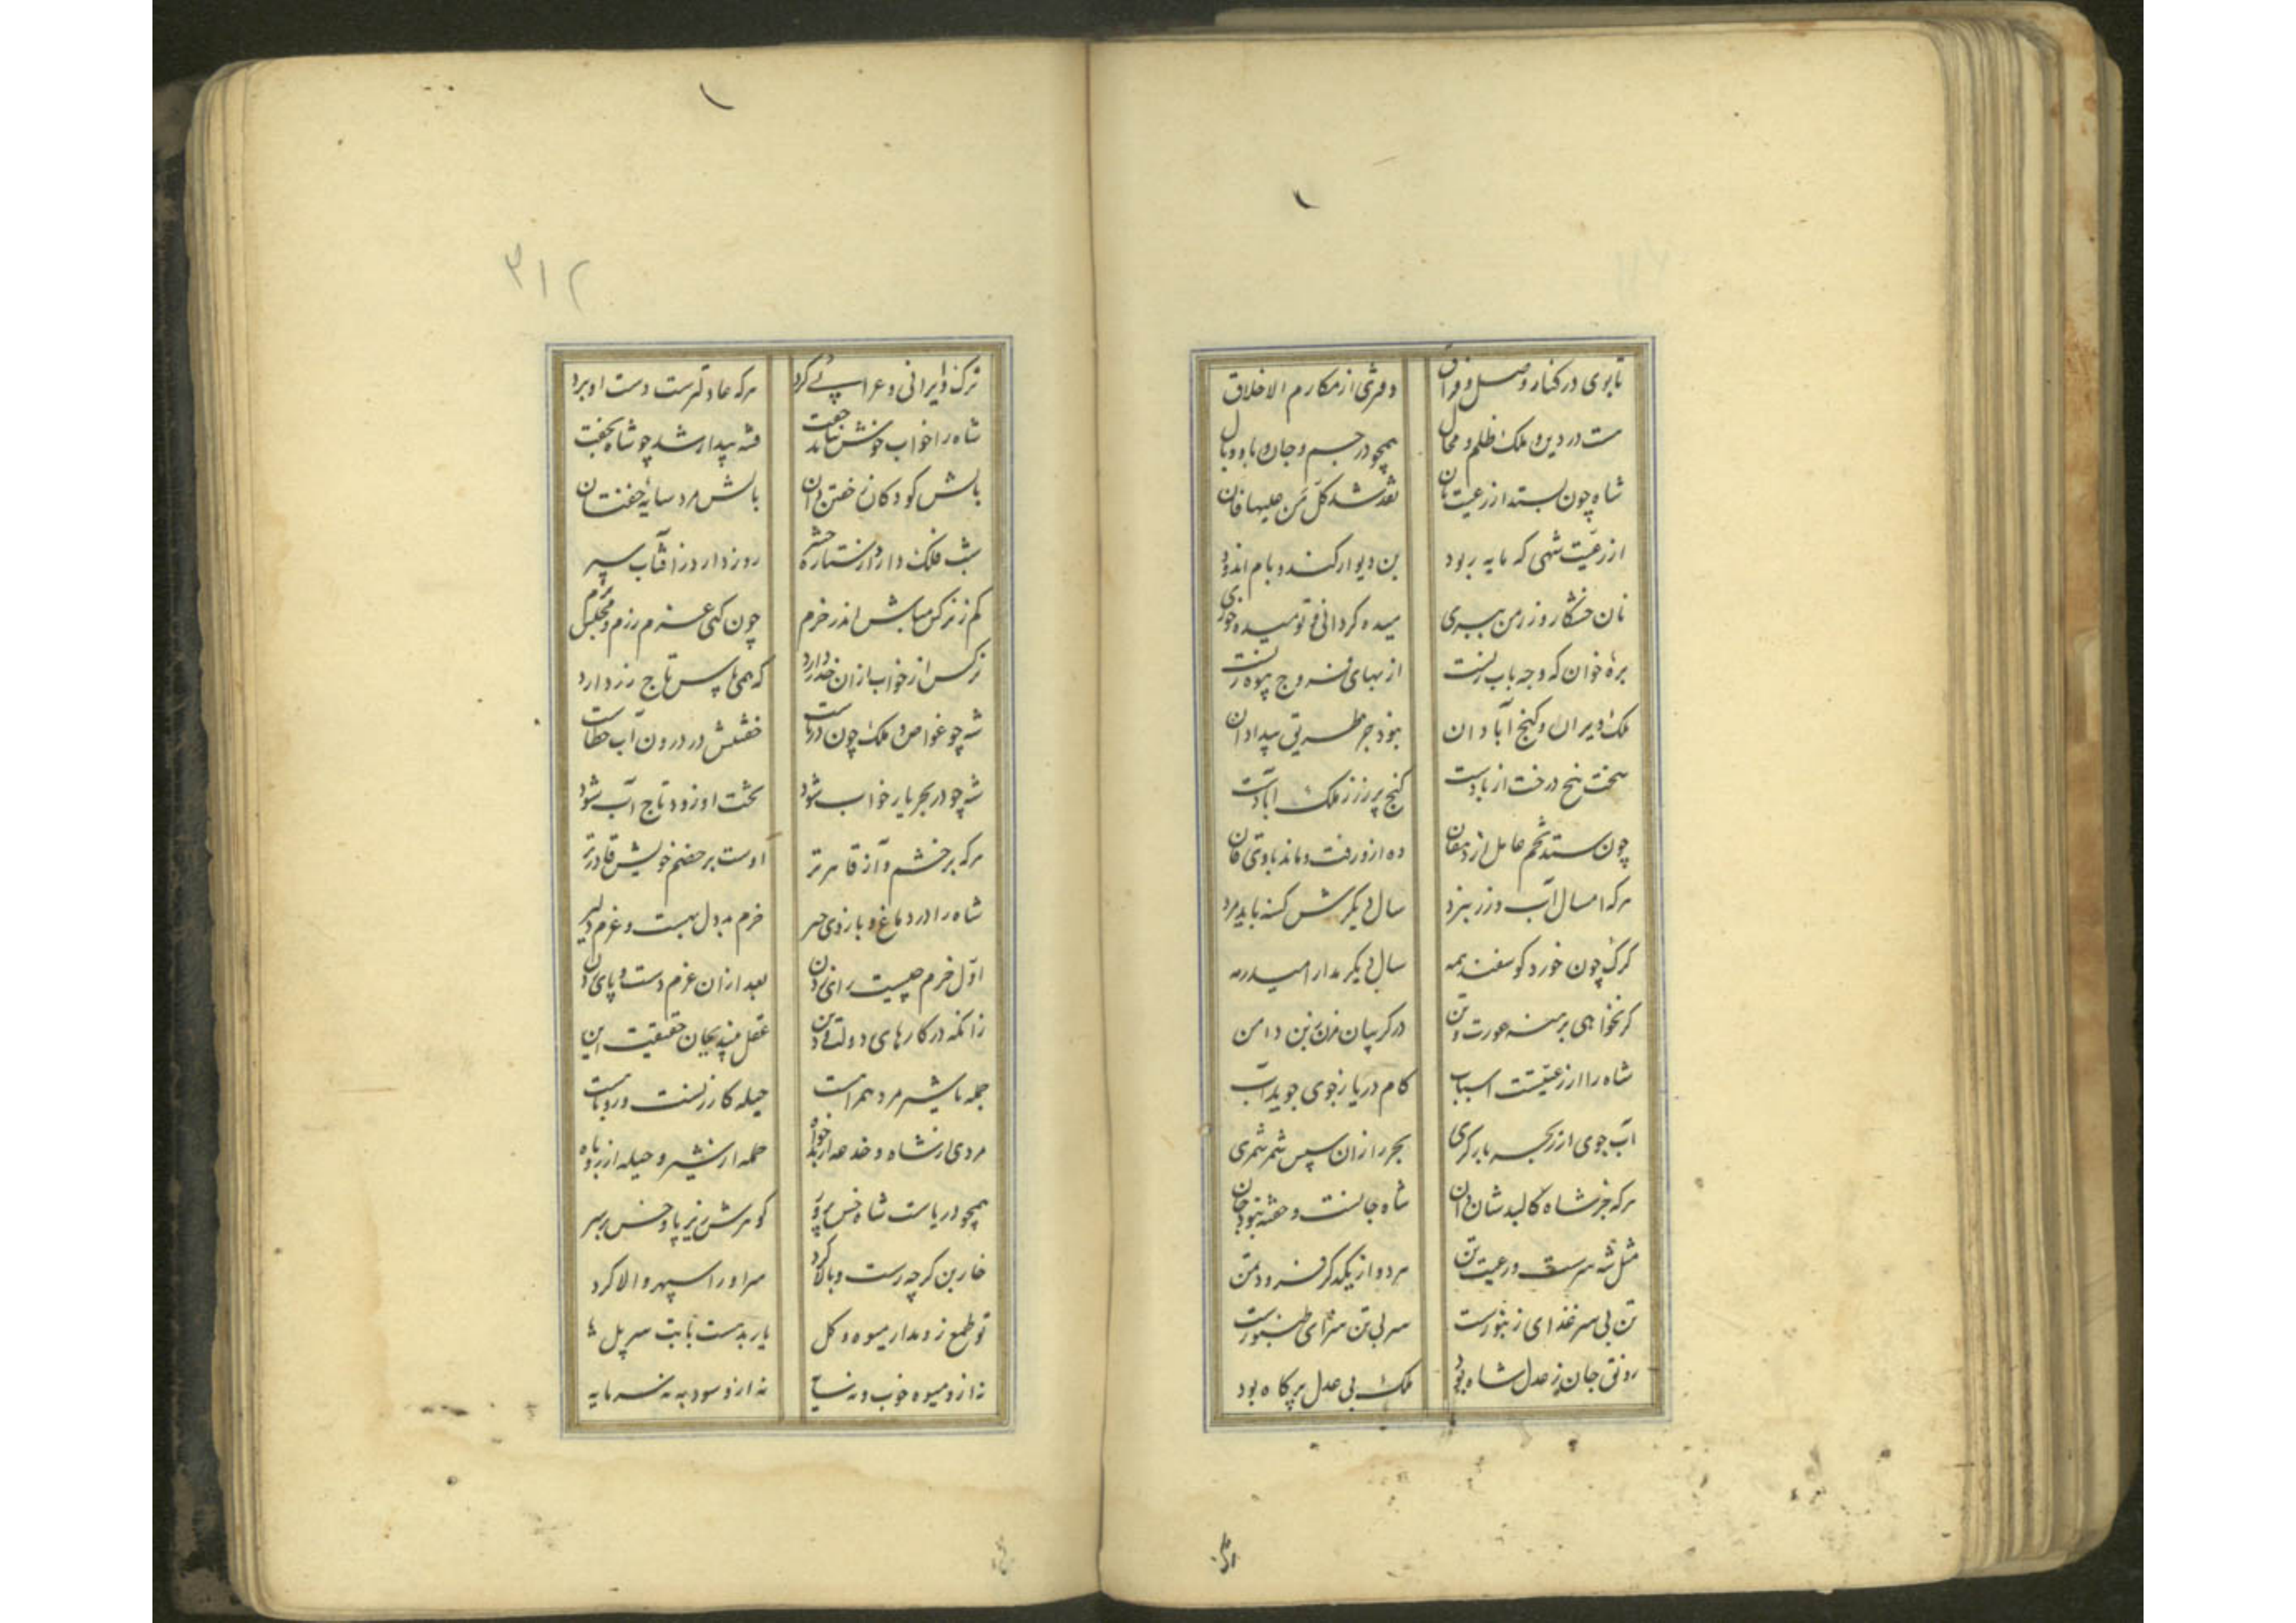 تا بوی در کنار وصل و فراق دفتری از مکارم الاخلاق
هست در دین و ملک ظلم و محال همچو در جسم و جان وبا و وبال
شاه چون بستد از رعیت نان نقد شد کل من علیها فان
از رعیت شهی که مایه ربود بن دیوار کند و بام اندود
نان خشکار روز من ببری میده گردانی و تو میده خوری
بره خوان که وجه باب زنست از بهای فروج پیوه زنست
ملک ویران و گنج آبادان نبود جز طریق بیدادان
سخت بیخ درخت از بادست گنج پر زر ز ملک آبادست
چون ستد تخم عامل از دهقان ده ازو رفت و ماند با وی قان
هرکه امسال آب رز ببرد سال دیگرش کسنه باید مرد
گرگ چون خورد گوسفند همه سال دیگر مدار امید رمه
گر نخواهی برهنه عورت و تن در گریبان مزن ز بن دامن
شاه را از رعیتست اسباب کام دریا ز جوی جوید آب
آب جوی ار ز بحر بازگری بحر را زان سپس شمر شمری
هرکه جز شاه کالبد شان دان شاه جانست و خفته نبود جان
مثل شه سرست و رعیت تن هر دو از یکدگر فزود ثمن
تن بی سر غذای زنبورست سر بی تن سزای طنبورست
رونق جان ز عدل شاه بود ملک بی عدل پر کاه بود
۳۱۲
ترک و ایرانی و عرابی و کرد هرکه عادلترست دست او برد
شاه را خواب خوش نباید جفت فتنه بیدار شد چو شاه بخفت
بالش کودکان ز خفتن دان بالش مرد سایه خفتان
شب فلک دارد از ستاره حشر روز دارد ز آفتاب سپر
کم ز نرگس مباش اندر حزم چون کنی عزم رزم و مجلس بزم
نرگس از خواب ازان حذر دارد که همی پاس تاج زر دارد
شه چو غواص و ملک چون دریاست خفتنش در درون آب خطاست
شه چو در بحر یار خواب شود تختش او زود تاج آب شود
هرکه بر خشم و آز قاهرتر اوست بر خصم خویش قادرتر
شاه را در دماغ و بازوی چیر حزم بددل بهست و عزم دلیر
اول حزم چیست رای زدن بعد ازان عزم دست و پای زدن
زانکه در کارهای دولت و دین عقل بیند بجان حقیقت این
حمله با شیر مرد همراهست حیله کار زنست و روباهست
مردی از شاه و خدعه از بدخواه حمله از شیر و حیله از روباه
همچو دریاست شاه خس پرور گوهرش زیر پا و خس بر سر
خاربن گرچه رست و بالا کرد سر او را سپهر والا کرد
تو طمع زو مدار میوه و گل یار بدهست بابت سر پل
نه ازو میوه خوب و نه سایه نه ازو سود به نه سرمایه